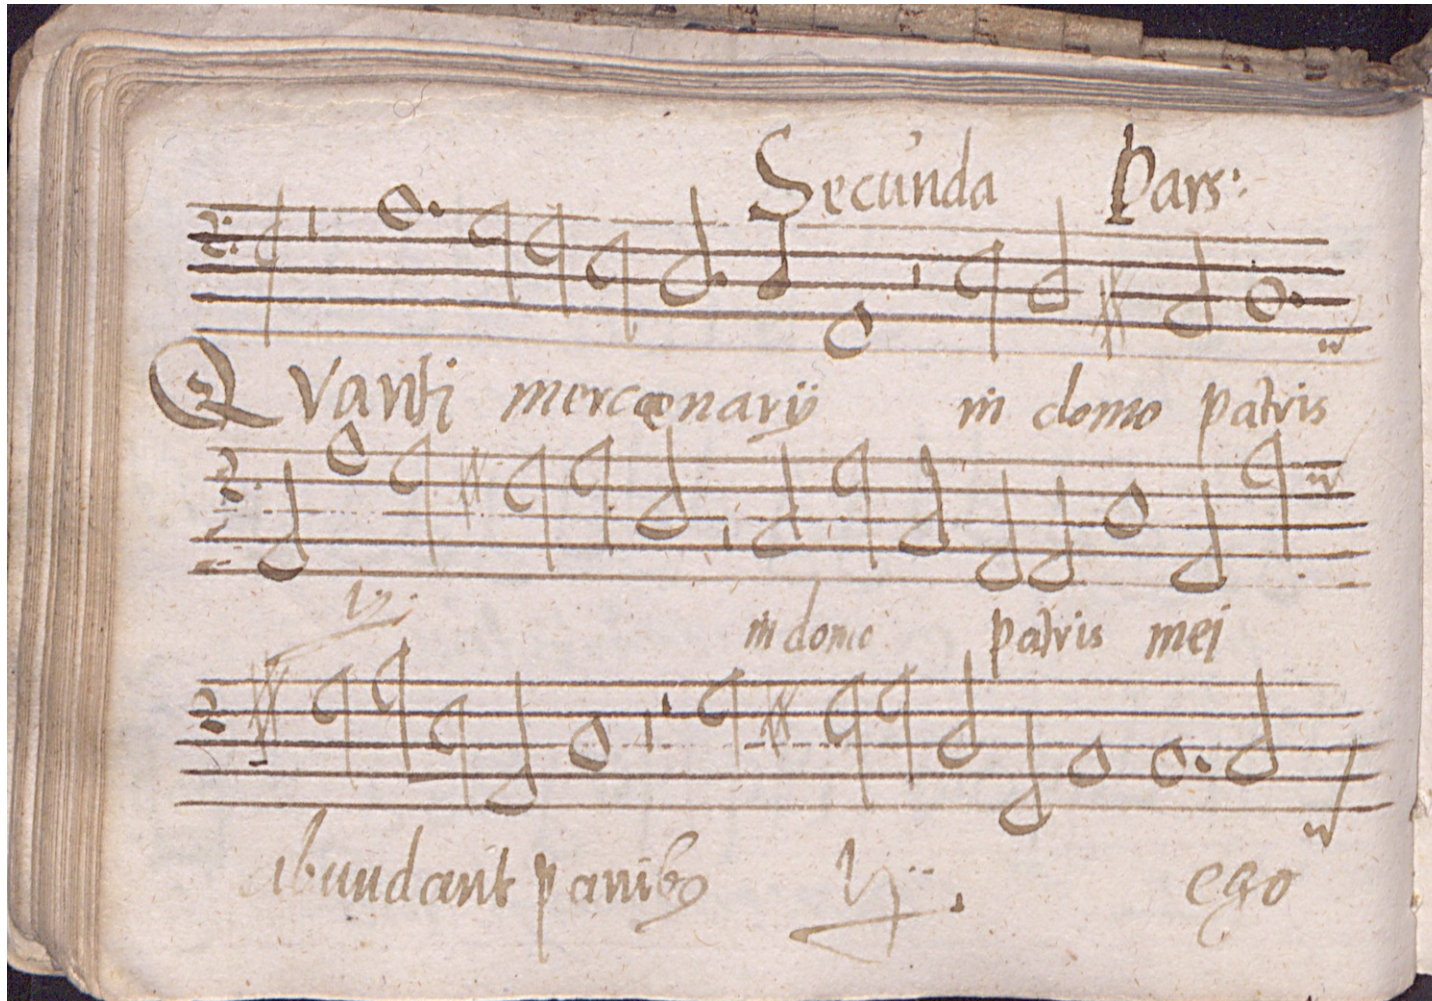 Secunda Pars:
Quanti mercænarij in domo patris
ij. in domo patris mei
abundant panibꝯ ij. ego